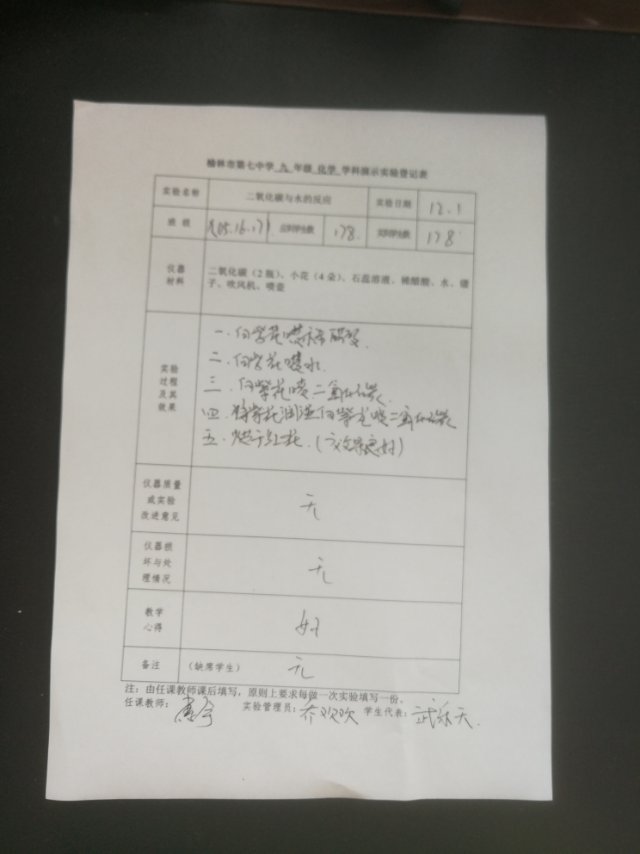 榆林市第七中学 九 年级 化学 学科演示实验登记表
实验名称 二氧化碳与水的反应 实验日期 12.1
班 级 15.16.17 应到学生数 178. 实到学生数 178
仪器
材料
二氧化碳（2瓶）、小花（4朵）、石蕊溶液、稀醋酸、水、镊
子、吹风机、喷壶
实验
过程
及其
效果
一.向紫花喷稀醋酸.
二.向紫花喷水.
三.向紫花喷二氧化碳.
四.将紫花润湿向紫花喷二氧化碳
五.烘干红花.(效果良好)
仪器质量
或实验
改进意见
无
仪器损
坏与处
理情况
无
教学
心得
好
备注 （缺席学生） 无
注：由任课教师课后填写，原则上要求每做一次实验填写一份。
任课教师： 实验管理员：乔欢欢 学生代表：武乐天.